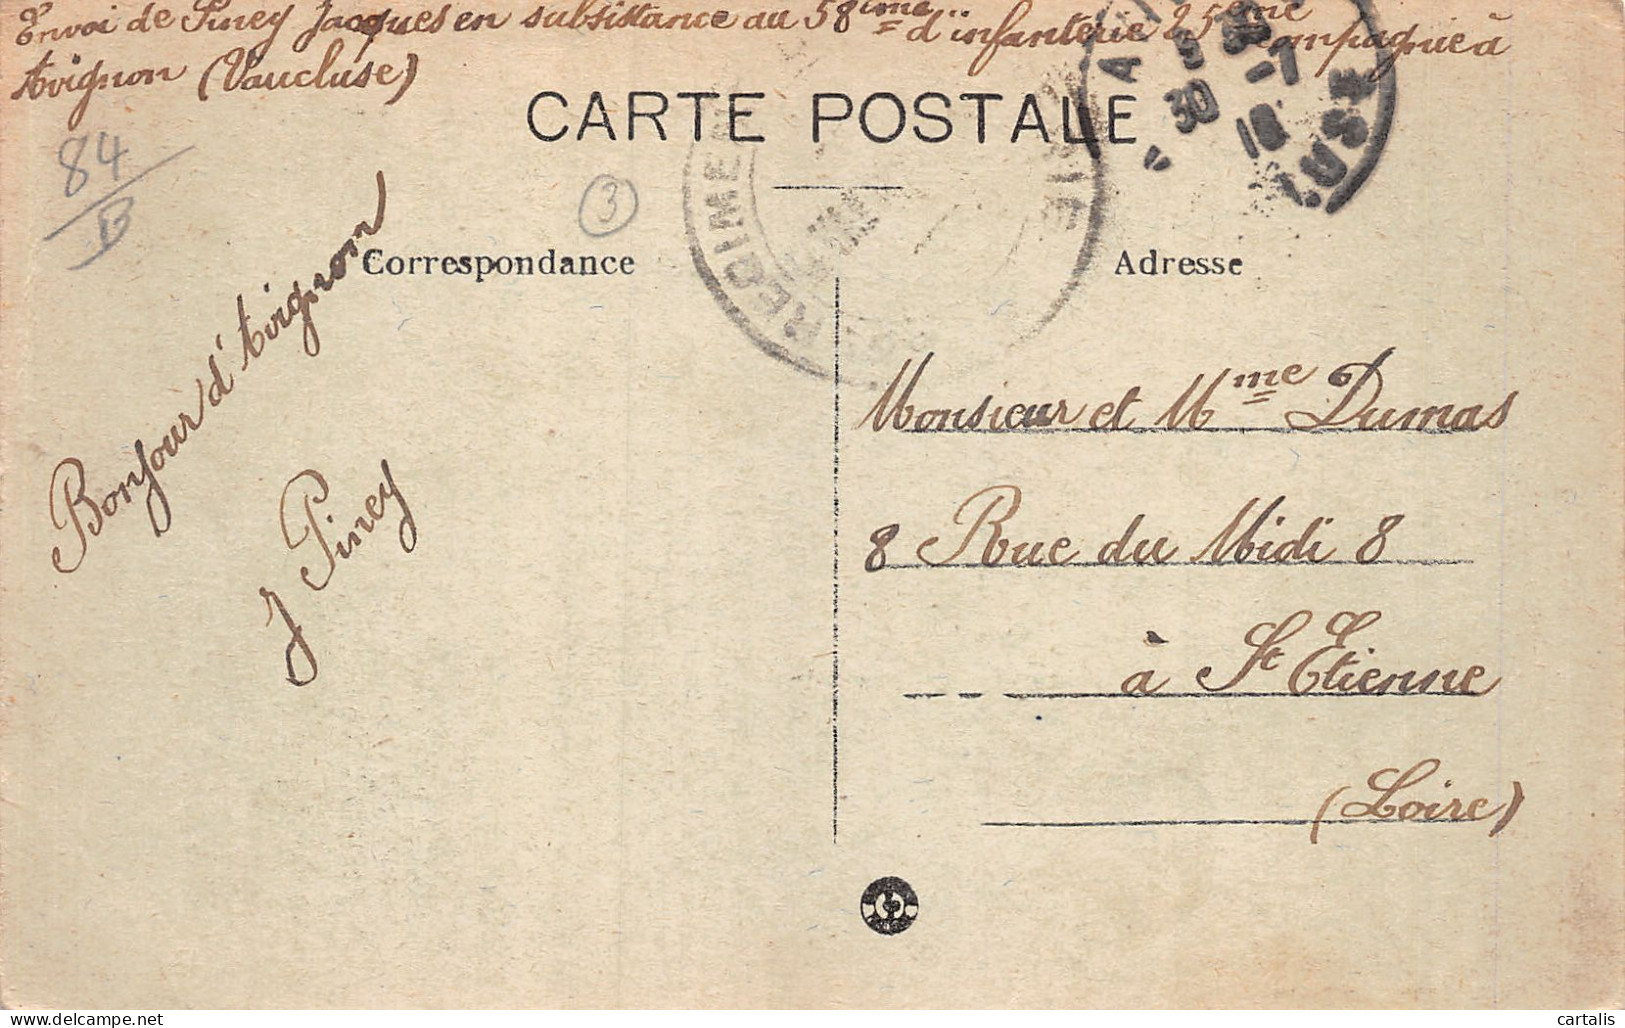 Envoi de Piney Jacques en subsistance au 58ème d'infanterie 25ème Compagnie à
Avignon (Vaucluse)
CARTE POSTALE
84
B
3
REGIME
30 -7
18
Correspondance
Adresse
Bonjour d'Avignon
J Piney
Monsieur et Mme Dumas
8 Rue du Midi 8
à St Etienne
(Loire)
cartalis